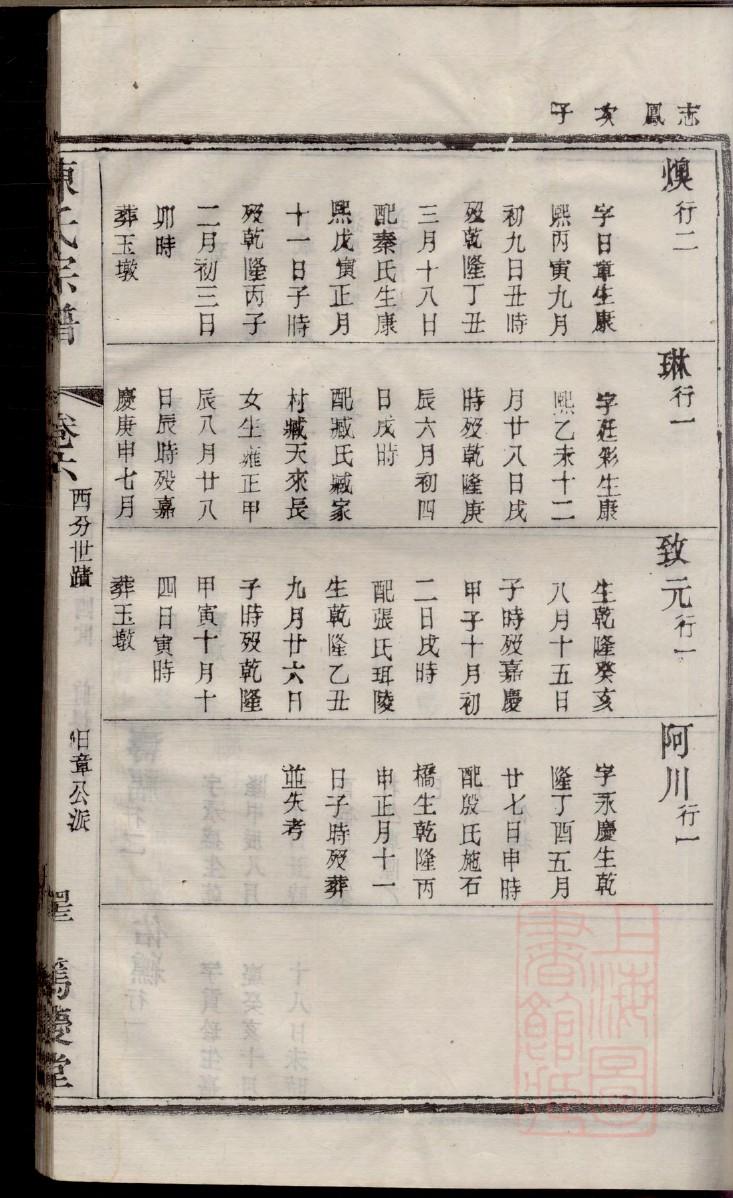 志鳳次子
煥行二
字日章生康
熙丙寅九月
初九日丑時
歿乾隆丁丑
三月十八日
配秦氏生康
熙戊寅正月
十一日子時
歿乾隆丙子
二月初三日
卯時
葬玉墩
琳行一
字廷彩生康
熙乙未十二
月廿八日戌
時歿乾隆庚
辰六月初四
日戌時
配臧氏臧家
村臧天來長
女生雍正甲
辰八月廿八
日辰時歿嘉
慶庚申七月
致元行一
生乾隆癸亥
八月十五日
子時歿嘉慶
甲子十月初
二日戌時
配張氏珥陵
生乾隆乙丑
九月廿六日
子時歿乾隆
甲寅十月十
四日寅時
葬玉墩
阿川行一
字永慶生乾
隆丁酉五月
廿七日申時
配殷氏施石
橋生乾隆丙
申正月十一
日子時歿葬
並失考
陳氏宗譜
卷六
西分世蹟
日章公派
篤慶堂
上海圖書館藏